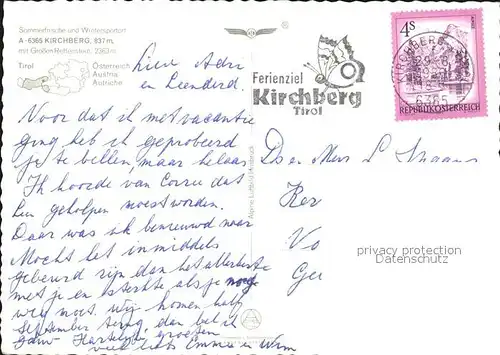 Sommerfrische und Wintersportort
A - 6365 KIRCHBERG, 837 m,
mit Großem Rettenstein, 2363 m
Tirol
Österreich
Austria
Autriche
Ferienziel
Kirchberg
Tirol
4 S
KIRCHBERG
6365
REPUBLIK ÖSTERREICH
Lieve Adri
en Leendert.
Voor dat ik met vacantie
ging heb ik geprobeerd
je te bellen, maar helaas
Ik hoorde van Corrie dat
Leen geholpen moest worden.
Daar was ik benieuwd naar
Mocht het inmiddels
gebeurd zijn dan het allerbeste
met je en sterkte als je nog
weg moet. Wij komen half
September terug, dan bel ik
jouw. Hartelijke groeten
veel liefs Emmie en Wim
De Mevr L
Ker
Vo
Ge
privacy protection
Datenschutz